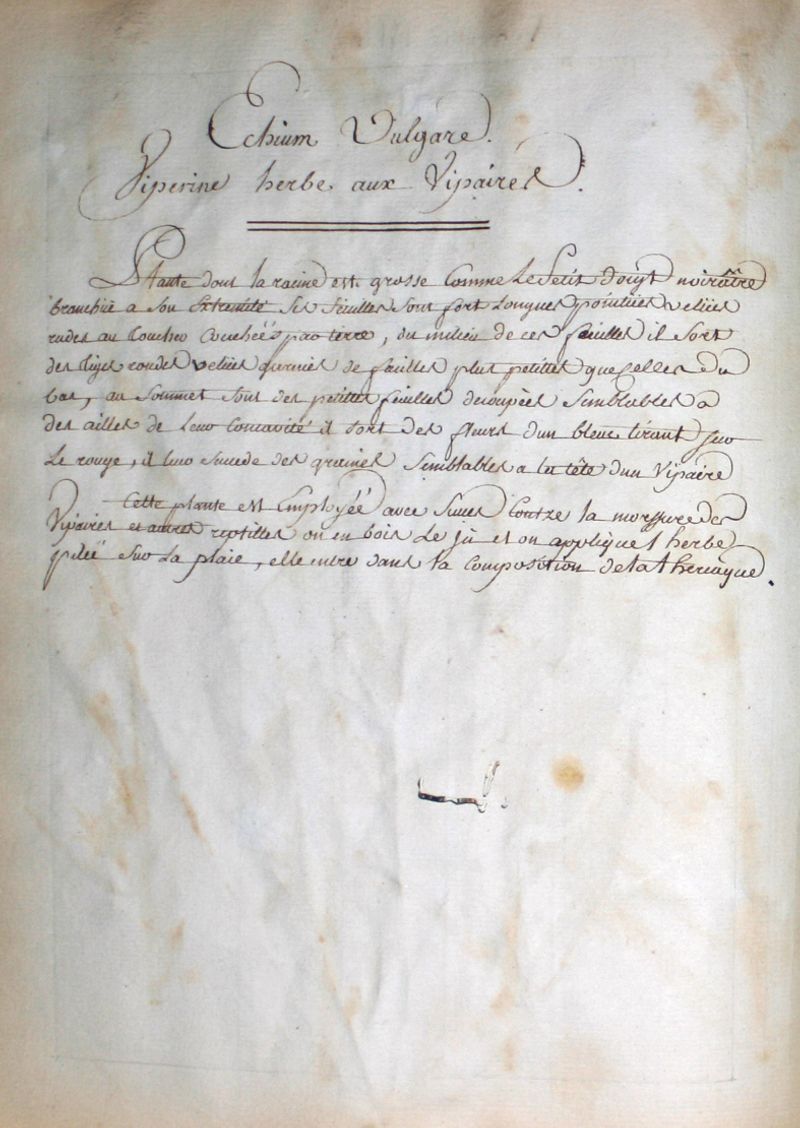 Echium Vulgare.
Viperine herbe aux Vipaires.
Plante dont la racine est grosse Comme Le Petit doigt noirâtre
branchue a son Extremité Ses feuilles sont fort Longues pointües velües
rudes au Toucher Couchéés par terre, du milieu de ces feuilles il sort
des Tiges rondes velües garnies de feuilles plus petittes que Celles du
bas, au Sommet sont des petittes feuilles decoupées Semblables a
des ailles de Leur Concavité il sort des fleurs d'un bleue tirant sur
Le rouge, il leur succede des graines Semblables a la tête d'un Vipaire
Cette plante est Employéé avec Succes Contre la morssure des
Vipaires et autres reptilles on en bois Le jû et on applique l'herbe
pilée Sur La plaie, elle entre dans la Composition de la theriaque.